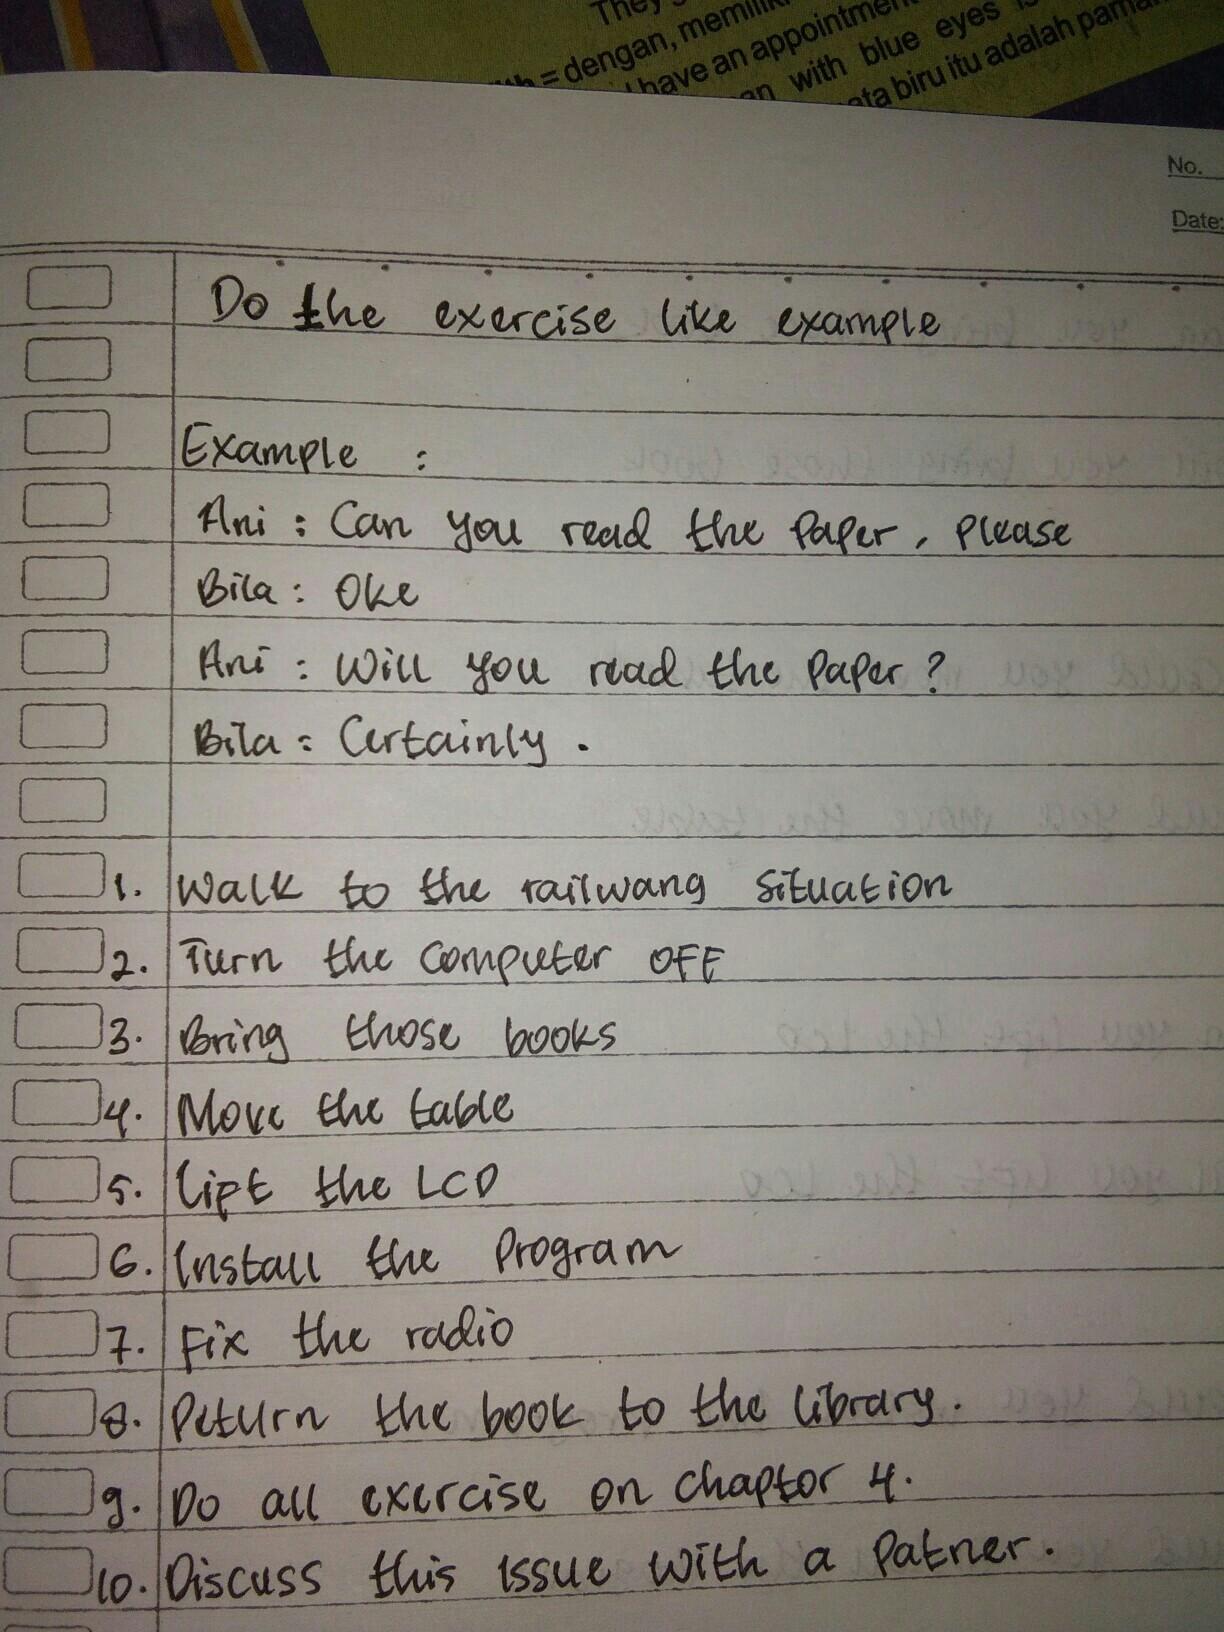 They
= dengan, memiliki
have an appointment
with blue eyes
biru itu adalah paman
No.
Date:
Do the exercise like example
Example :
Ani : Can you read the paper, please
Bila : Oke
Ani : Will you read the paper?
Bila : Certainly.
1. Walk to the railwang situation
2. Turn the computer OFF
3. Bring those books
4. Move the table
5. Lipt the LCD
6. Install the program
7. Fix the radio
8. Return the book to the library.
9. Do all exercise on chaptor 4.
10. Discuss this issue with a patner.